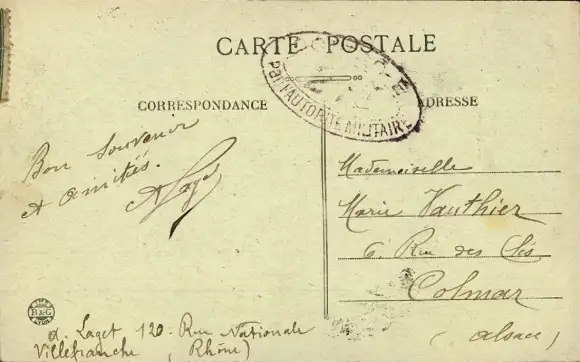 CARTE POSTALE
Par l'AUTORITÉ MILITAIRE
CORRESPONDANCE
ADRESSE
Bon Souvenir
et Amitiés.
A Laget
Mademoiselle
Marie Vauthier
6. Rue des Clés
Colmar
(Alsace)
B&G
A. Laget 120. Rue Nationale
Villefranche (Rhône)